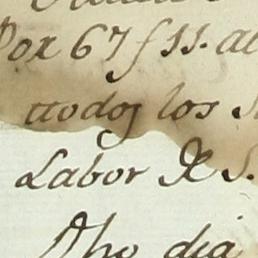 Por 67 f 11. al
atodos los
Labor de S.
Dho dia